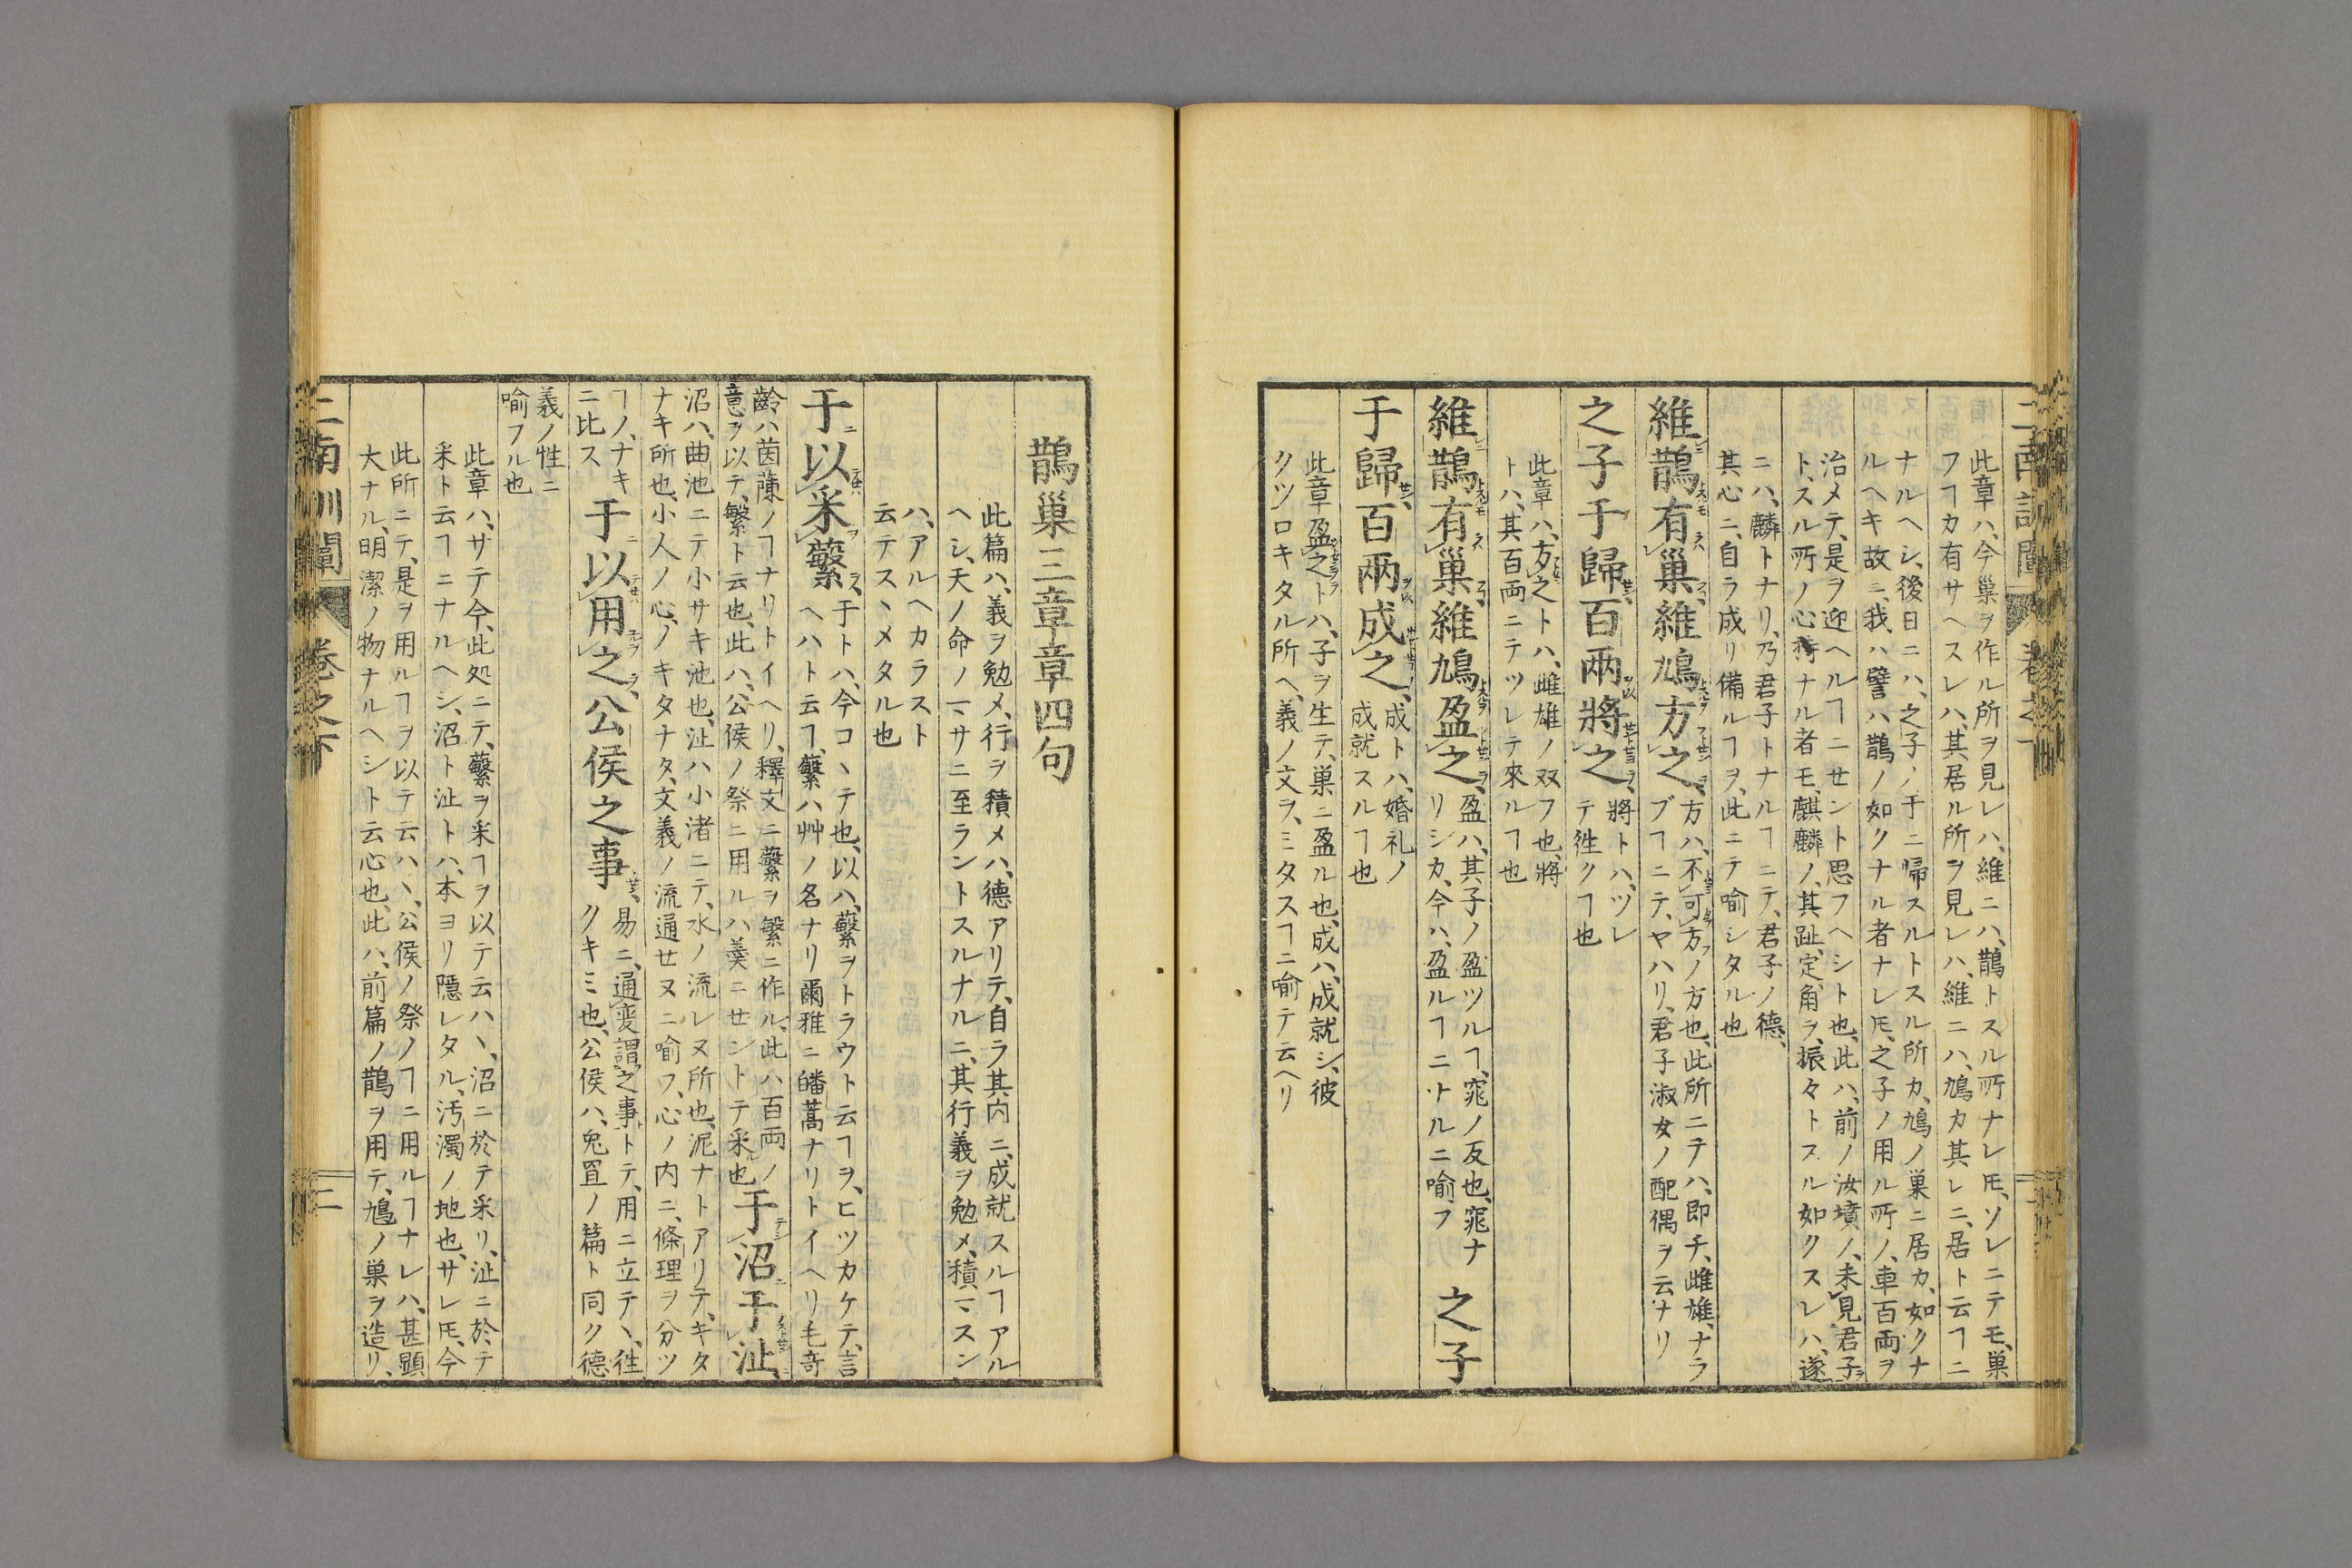 此章ハ、今巢ヲ作ル所ヲ見レハ、維ニハ、鵲トスル所ナレ𪜈、ソレニテモ、巢
フヿカ有サヘスレハ、其居ル所ヲ見レハ、維ニハ、鳩カ其レニ、居ト云ヿニ
ナルヘシ、後日ニハ、之子ノ于ニ帰スルトスル所カ、鳩ノ巢ニ居カ、如クナ
ルヘキ故ニ、我ハ譬ハ鵲ノ如クナル者ナレ𪜈、之子ノ用ル所ノ、車百両ヲ
治メテ、是ヲ迎ヘルヿニセント思フヘシト也、此ハ、前ノ汝墳ノ、未見君子
ト、スル所ノ心ナル者モ、麒麟ノ、其趾、定、角ヲ、振々トスル如クスレハ、遂
ニハ、麟トナリ、乃君子トナルヿニテ、君子ノ德、
其心ニ、自ラ成リ備ルヿヲ、此ニテ喻シタル也
維鵲有巢維鳩方之
方ハ、不可方ノ方也、此所ニテハ、即チ、雌雄、ナラ
ブヿニテ、ヤハリ、君子淑女ノ配偶ヲ云ナリ
之子于歸百兩將之
將トハ、ツレ
テ徃クヿ也
此章ハ、方之トハ、雌雄ノ双フ也、將
トハ、其百両ニテツレテ來ルヿ也
維鵲有巢維鳩盈之
盈ハ、其子ノ盈ツルヿ、窕ノ反也、窕ナ
リシカ、今ハ、盈ルヿニナルニ喻フ
之子
于歸百兩成之
成トハ、婚礼ノ
成就スルヿ也
此章盈之トハ、子ヲ生テ、巢ニ盈ル也、成ハ、成就シ、彼
クツロキタル所ヘ、義ノ文ヲ、ミタスヿニ喻テ云ヘリ
鵲巢三章章四句
此篇ハ、義ヲ勉メ、行ヲ積メハ、德アリテ、自ラ其内ニ、成就スルヿアル
ヘシ、天ノ命ノマサニ至ラントスルナルニ、其行義ヲ勉メ、積マスン
ハ、アルヘカラスト
云テスヽメタル也
于以采蘩
于トハ、今コヽテ也、以ハ、蘩ヲトラウト云ヿヲ、ヒツカケテ、言
ヘハト云ヿ、蘩ハ艸ノ名ナリ爾雅ニ皤蒿ナリトイヘリ毛竒
齡ハ茵蔯ノヿナリトイヘリ、釋文ニ蘩ヲ繁ニ作ル、此ハ百両ノ
意ヲ以テ、繁ト云也、此ハ、公侯ノ祭ニ用ルハ羹ニセントテ采也
于沼于沚
沼ハ、曲池ニテ小サキ池也、沚ハ小渚ニテ、水ノ流レヌ所也、泥ナトアリテ、キタ
ナキ所也、小人ノ心、ノキタナタ、文義ノ流通セヌニ喻フ、心ノ内ニ、條理ヲ分ツ
ヿノ、ナキ
ニ比ス
于以用之公侯之事
易ニ、通変謂之事トテ、用ニ立テヽ、徃
クキミ也、公侯ハ、兔罝ノ篇ト同ク德
義ノ性ニ
喻フル也
此章ハ、サテ今、此処ニテ、蘩ヲ采ヿヲ以テ云ハヽ、沼ニ於テ采リ、沚ニ於テ
采ト云ヿニナルヘシ、沼ト沚トハ、本ヨリ隱レタル、汚濁ノ地也、サレ𪜈、今
此所ニテ、是ヲ用ルヿヲ以テ云ハヽ、公侯ノ祭ノヿニ用ルヿナレハ、甚顕
大ナル、明潔ノ物ナルヘシト云心也、此ハ、前篇ノ鵲ヲ用テ、鳩ノ巣ヲ造リ、
二南訓闡 卷之下 二